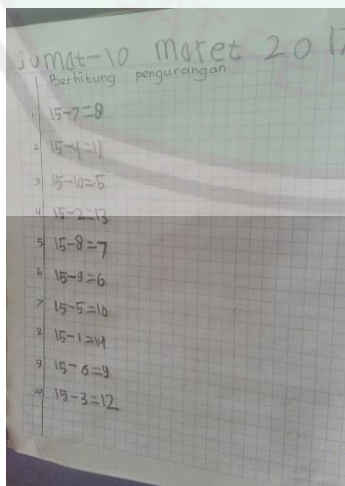 jumat-10 maret 2017
Berhitung pengurangan
1 15-7=8
2 15-4=11
3 15-10=5
4 15-2=13
5 15-8=7
6 15-9=6
7 15-5=10
8 15-1=14
9 15-6=9
10 15-3=12